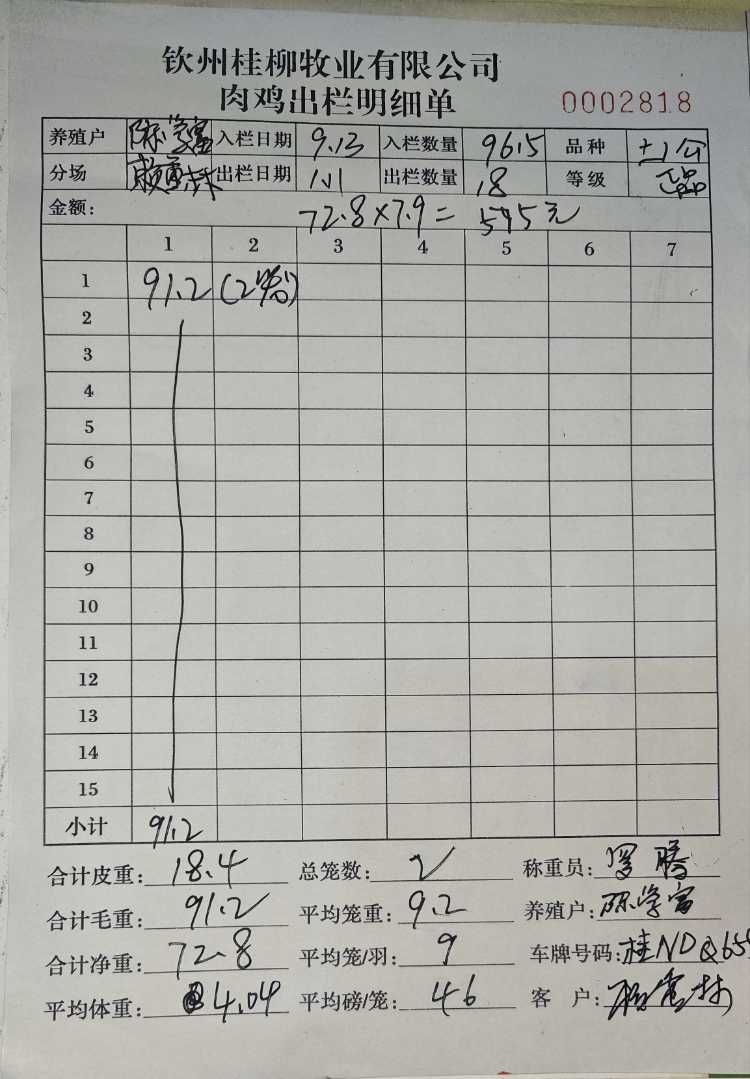 钦州桂柳牧业有限公司
肉鸡出栏明细单 0002818
养殖户 陈学富 入栏日期 9.13 入栏数量 9615 品种 土1公
分场 出栏日期 1.11 出栏数量 18 等级 正品
金额: 72.8×7.9= 575元
1 2 3 4 5 6 7
1 91.2 (2笼)
2
3
4
5
6
7
8
9
10
11
12
13
14
15
小计 91.2
合计皮重: 18.4 总笼数: 2 称重员: 罗腾
合计毛重: 91.2 平均笼重: 9.2 养殖户: 陈学富
合计净重: 72.8 平均笼/羽: 9 车牌号码: 桂NDQ655
平均体重: 4.04 平均磅/笼: 46 客 户: